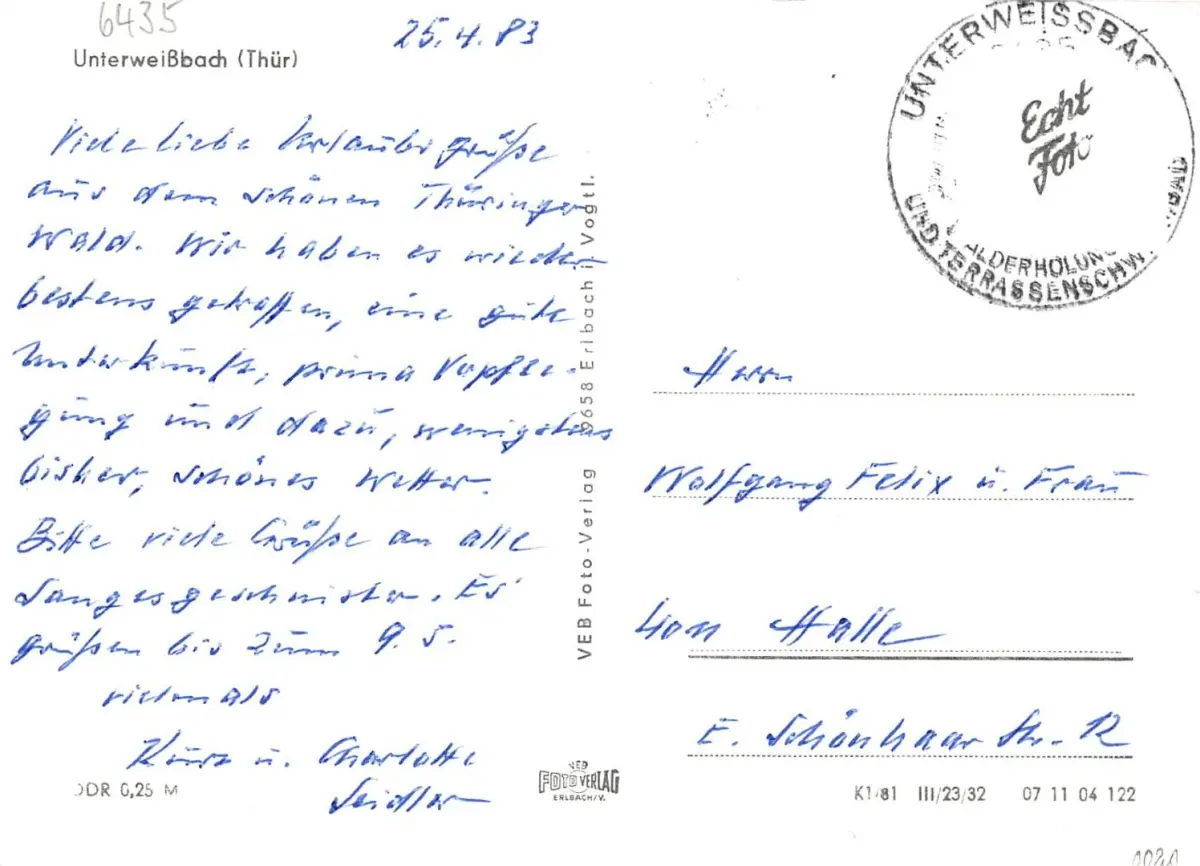 6435
Unterweißbach (Thür)
25.4.83
Viele liebe Urlaubsgrüße
aus dem schönen Thüringer
Wald. Wir haben es wieder
bestens getroffen, eine gute
Unterkunft, prima Verpfle-
gung und dazu, wenigstens
bisher, schönes Wetter.
Bitte viele Grüße an alle
Sangesgeschwister. Es
grüßen bis zum 9.5.
vielmals
Kurt u. Charlotte
Seidler
DDR 0,25 M
VEB Foto-Verlag 9658 Erlbach i. Vogtl.
VEB
FOTO VERLAG
ERLBACH/V.
UNTERWEISSBAC
Echt
Foto
ALDERHOLUNG
UND TERRASSENSCHW
BAD
Herrn
Wolfgang Felix u. Frau
Halle
E. Schönhaar Str.
K1/81 III/23/32 07 11 04 122
1021